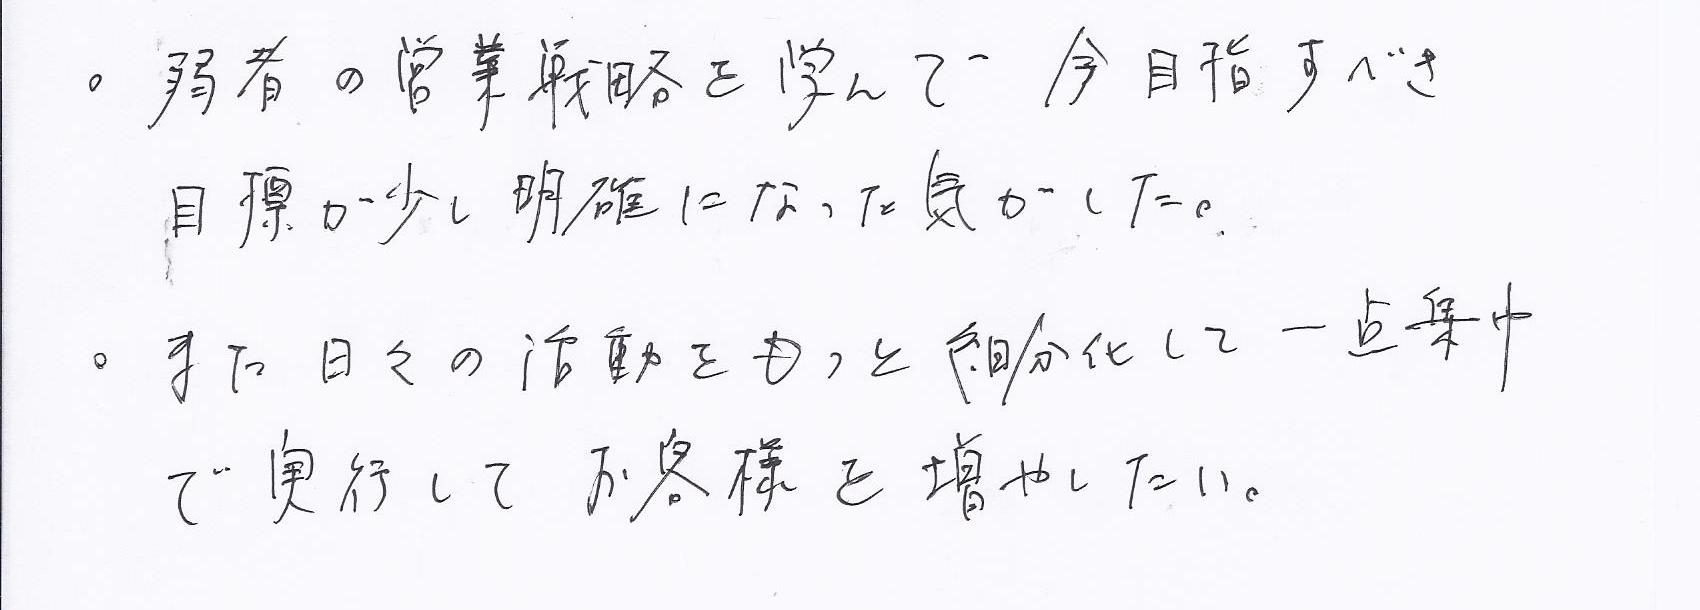 。弱者の営業戦略を学んで 今目指すべき
目標が少し明確になった気がした。
。また日々の活動をもっと細分化して一点集中
で実行して お客様を増やしたい。